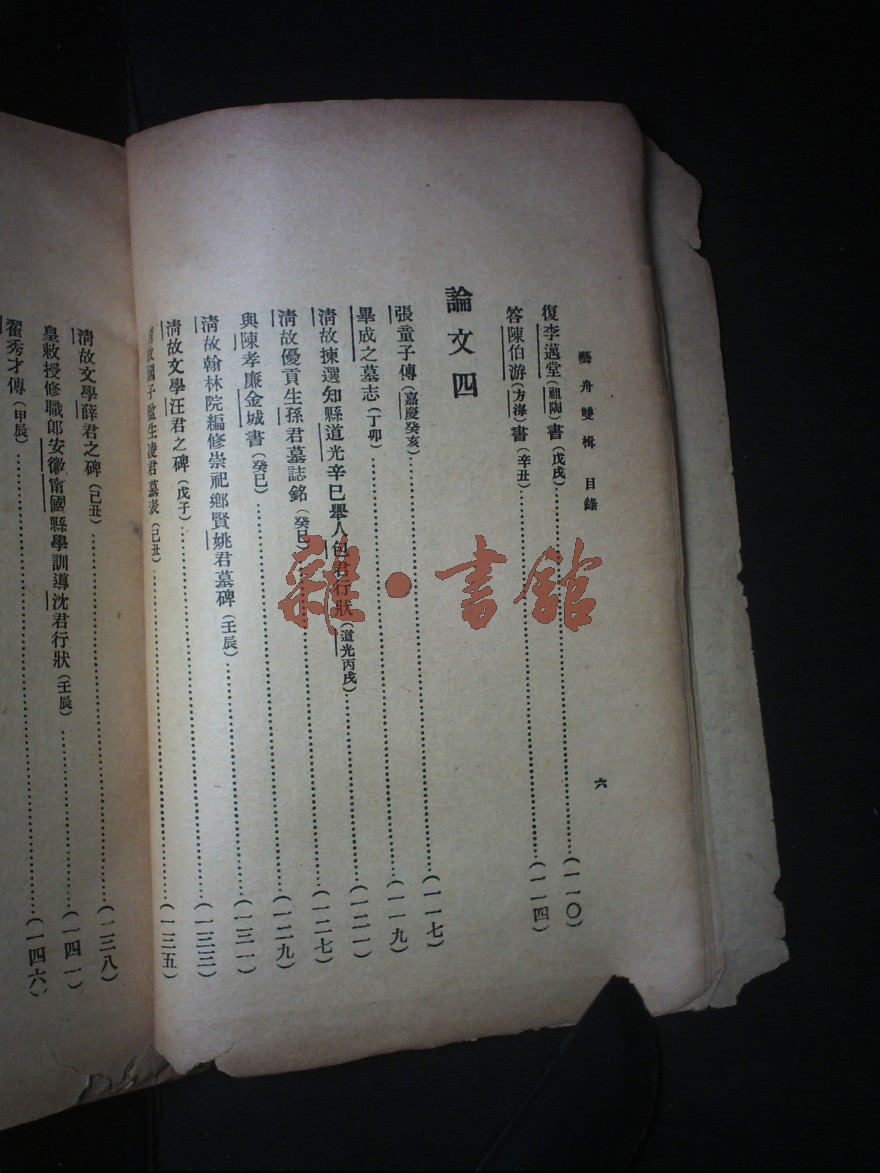 藝舟雙楫 目錄
六
復李邁堂(祖陶)書(戊戌)……(一一〇)
答陳伯游(方海)書(辛丑)……(一一四)
論文四
張童子傳(嘉慶癸亥)……(一一七)
畢成之墓志(丁卯)……(一一九)
清故揀選知縣道光辛巳舉人包君行狀(道光丙戌)……(一二一)
清故優貢生孫君墓誌銘(癸巳)……(一二七)
與陳孝廉金城書(癸巳)……(一二九)
清故翰林院編修崇祀鄉賢姚君墓碑(壬辰)……(一三一)
清故文學汪君之碑(戊子)……(一三三)
清故國子監生凌君墓表(己丑)……(一三五)
清故文學薛君之碑(己丑)……(一三八)
皇敕授修職郎安徽甯國縣學訓導沈君行狀(壬辰)……(一四一)
翟秀才傳(甲辰)……(一四六)
雜·書館